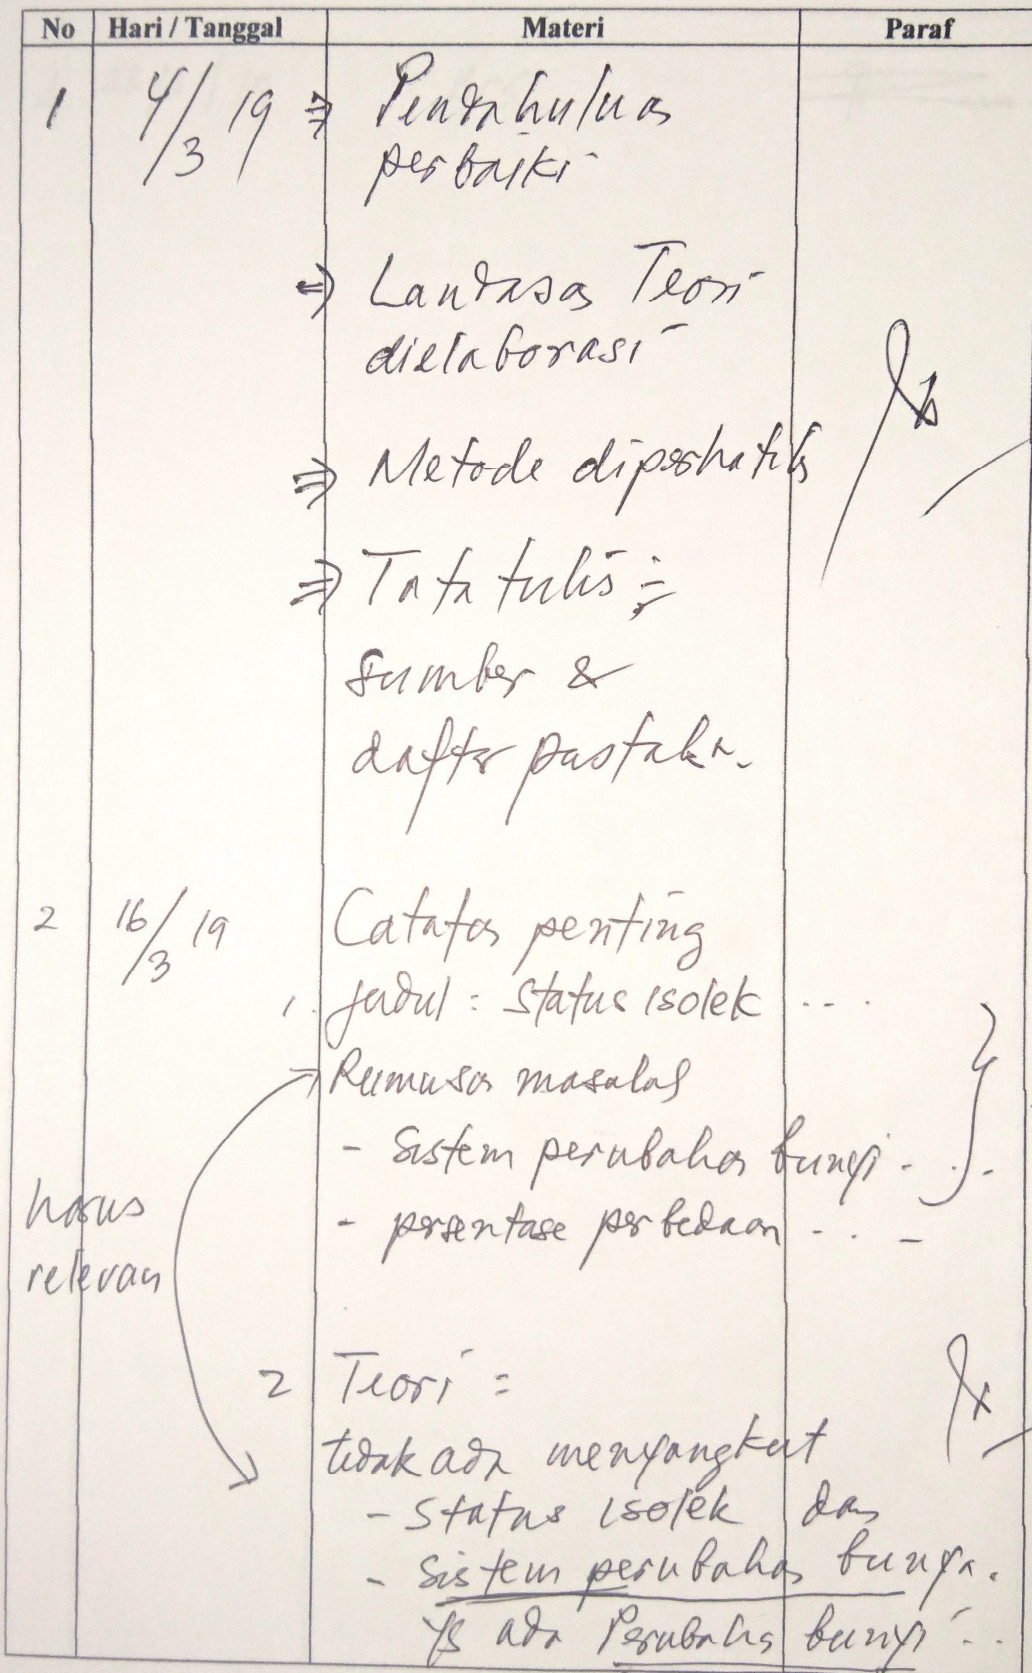 No Hari / Tanggal Materi Paraf
1 4/3 19 ⇒ Pendahuluan
perbaiki
⇒ Landasan Teori
dielaborasi
⇒ Metode diperhatik
⇒ Tata tulis :
sumber &
daftar pustaka.
2 16/3 19 Catatan penting
1. Judul : Status isolek ...
→ Rumusan masalah
- Sistem perubahan bunyi ...
harus
- persentase perbedaan ...
relevan
2 Teori :
tidak ada menyangkut
- Status isolek dan
- Sistem perubahan bunyi.
yg ada Perubahan bunyi ...